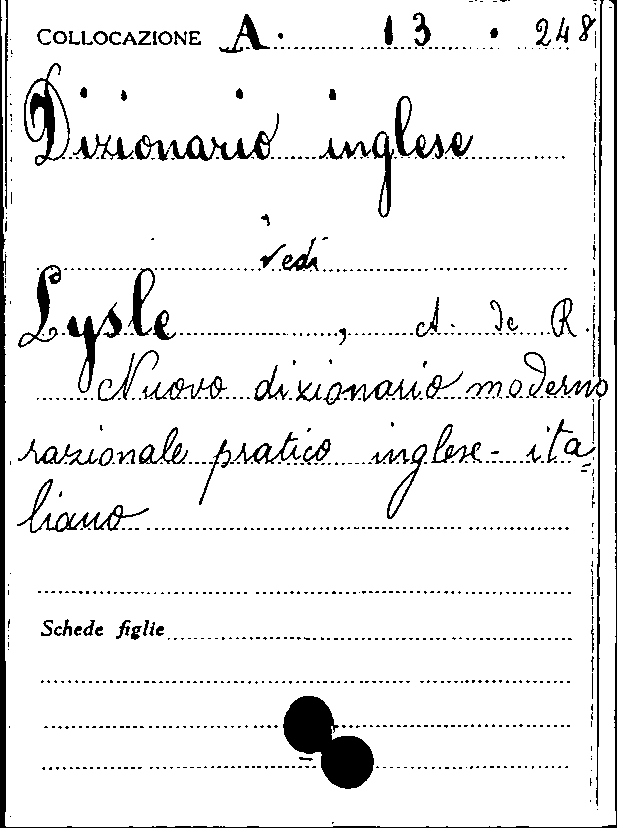 COLLOCAZIONE A. 13 . 248
Dizionario inglese
vedi
Lysle, A. de R.
Nuovo dizionario moderno
razionale pratico inglese-ita=
liano
Schede figlie